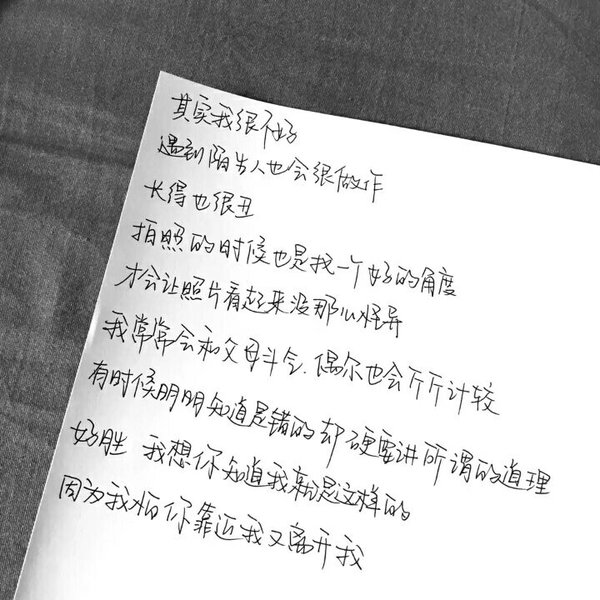 其实我很不好
遇到陌生人也会很做作
长得也很丑
拍照的时候也是找一个好的角度
才会让照片看起来没那么怪异
我常常会和父母斗气.偶尔也会斤斤计较
有时候明明知道是错的却硬要讲所谓的道理
好胜 我想你知道我就是这样的
因为我怕你靠近我又离开我